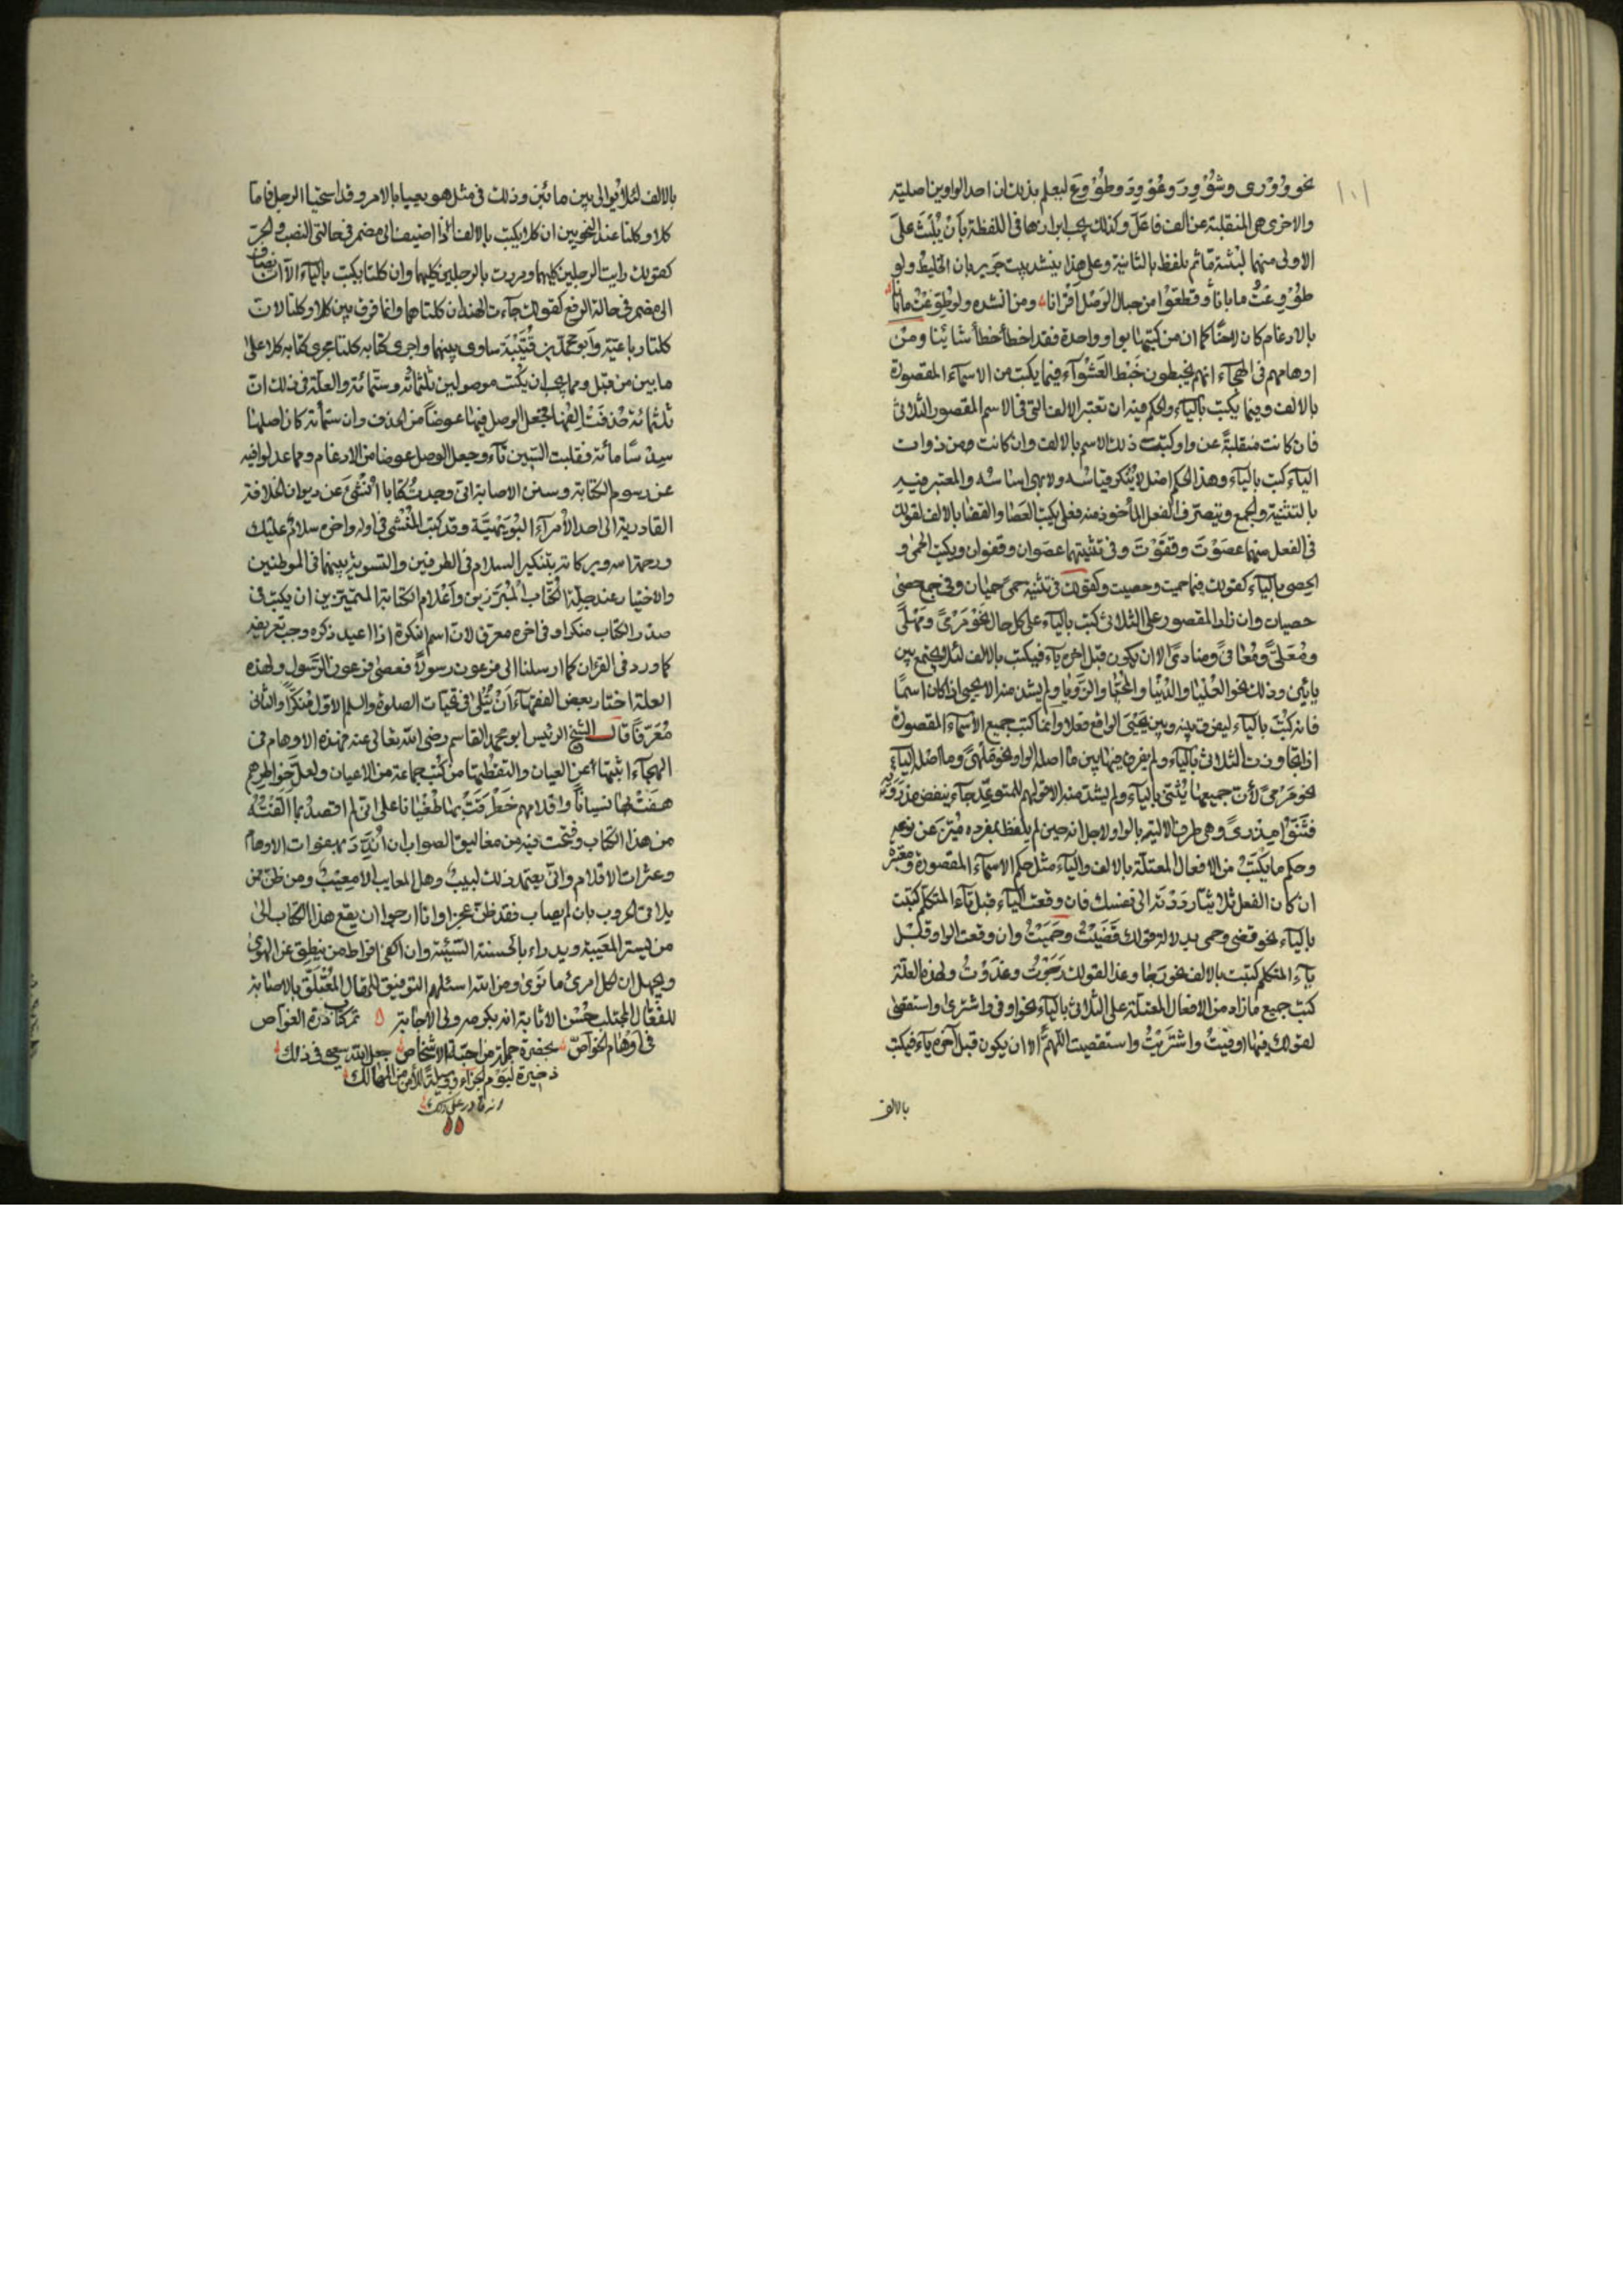 ١٠١
نحو وُوْرِى وشُوْوِرَ وعُوْوِدَ وطُوْوِعَ ليعلم بذلك ان احد الواوين اصلية
والاخرى هى المنقلبة عن الف فاعل وكذلك يجب ابرازها فى اللفظة بأن يُلبث على
الاولى منهما لبثة ما ثم يلفظ بالثانية وعلى هذا ينشد بيت جرير بان الخليط ولو
طُوْوِعْتُ ما بانا وقطعوا من حبال الوَصْل اقرانا ومن انشده ولو طُوّعْتُ ما بانا
بالادغام كان لاحنًا كما ان من كتبهما بواو واحدة فقد اخطأ خطأ شائنا ومن
اوهامهم فى الهجاء انهم يخبطون خَبْط العَشْوآء فيما يكتب من الاسماء المقصورة
بالالف وفيما يكتب بالياء والحكم فيه ان تعتبر الالف التى فى الاسم المقصور الثلاثى
فان كانت منقلبةً عن واو كتبت ذلك الاسم بالالف وان كانت من ذوات
الياء كتب بالياء وهذا الحكم اصل لا يُنكر قياسه ولا يهى اساسه والمعتبر فيه
بالتثنية والجمع وبتصرّف الفعل المأخوذ منه فعلى يكتب العَصَا والقفَا بالالف لقولك
فى الفعل منهما عصَوْتَ وقفَوْتَ وفى تثنيتهما عصَوان وقفوان ويكتب الحمى و
الحصى بالياء كقولك فيها حميت وحصيت وكقولك فى تثنية حمى حميان وفى جمع حصى
حصيات وان زاد المقصور على الثلاثى كتب بالياء على كل حال نحو مَرْمىً ومَلْهىً
ومُعَلىً ومُعَافىً ومنادىً الا ان يكون قبل آخره ياء فيكتب بالالف لئلا يجمع بين
يائين وذلك نحو العُلْيَا والدُنْيَا والمَحْيَا والرُّوْيا ولم يشذ منه الا يحيى اذا كان اسمًا
فانه كُتِبَ بالياء ليفرق بينه وبين يَحْيىَ الواقع فعلا وانما كتب جميع الاسماء المقصورة
اذا تجاوزت الثلاثى بالياء ولم يفرق فيها بين ما اصله الواو نحو مَلهىً وما اصله الياء
نحو مَرْمىً لأن جميعها يُثنى بالياء ولم يشذ منه الا قولهم للمتوعّد جاء ينفض مِذرَوَيْه
فثنّوا مِذرىً وهى طرف الالية بالواو ولاجل انه حين لم يلفظ بمفرده مُيّز عن نوعه
وحكم ما يكتب من الافعال المعتلة بالالف والياء مثل حكم الاسماء المقصورة ومعتبره
ان كان الفعل ثلاثيًا ردَدْته الى نفسك فان وقعت الياء قبل تاء المتكلم كتبت
بالياء نحو قضى وحمى بدلالة قولك قَضَيْتُ وحَمَيْتُ وان وقعت الواو قبل
تاء المتكلم كتبت بالالف نحو رَجَا وغدا لقولك رَجَوْتُ وغدَوْتُ ولهذه العلة
كتب جميع ما زاد من الافعال المعتلة على الثلاثى بالياء نحو اوفى واشترى واستقصى
لقولك فيها اوفيتُ واشترَيْتُ واستقصيت اللهمَّ الا ان يكون قبل آخره ياء فيكتب
بالالف
بالالف لئلا يُوالى بين ياءين وذلك فى مثل هو يعيا بالامر وقد استحيا الرجل فاما
كلا وكلتا عند النحويين ان كلا يكتب بالالف الا اذا اضيف الى مضمر فى حالتى النصب والجر
كقولك رايت الرجلين كليهما ومررت بالرجلين كليهما وان كلتا يكتب بالياء الا ان تضاف
الى مضمر فى حالة الرفع كقولك جاءت الهندان كلتاهما وانما فرق بين كلا وكلتا لان
كلتا رباعية وأبو محمد بن قُتَيْبَة ساوى بينهما واجرى كتابه كلتا مجرى كتابه كلا على
ما بين من قبل ومما يجب ان يكتب موصولين ثلثمائة وستّمائة والعلة فى ذلك انّ
ثلثمائة حُذفَتْ الفها فجعل الوصل فيها عوضًا من الحذف وان ستّمائة كان اصلها
سِدْسًا مائة فقلبت السين تاء وجعل الوصل عوضا من الادغام ومما عدلوا فيه
عن رسوم الكتابة وسنن الاصابة انى وجدتُ كتابا اُنْشِىَ عن ديوان الخلافة
القادرية الى احد الأمرآء البُوَيْهِيّة وقد كتب المُنْشِى فى اوله واخره سلامٌ عليك
ورحمة الله وبركاته بتنكير السلام فى الطرفين والتسوية بينهما فى الموطنين
والاختيار عند جلّة الكُتّاب المُبْرَزين وأعْلام الكتابة المميّزين ان يكتب فى
صدر الكتاب منكرا وفى اخره معرفا لان اسم النكرة اذا اعيد ذكره وجب تعريفه
كما ورد فى القرءان كما ارسلنا الى فرعون رسولاً فعصى فرعون الرَّسول ولهذه
العلة اختار بعض الفقهاء أنْ يُتْلى فى تحيات الصلوة والسلم الاول مُنكّرًا والثانى
مُعَرّفًا قال الشيخ الرئيس ابو محمد القاسم رضى الله تعالى عنه فهذه الاوهام فى
الهجاء اثبتها عن العيان والتقطتها من كُتب جماعة من الاعيان ولعلّ خواطرهم
هَفَتْ بها نسيانًا واقلامهم خَطْرَفَتْ بها طُغْيَانا على انى لم اقصد بما الّفْتُه
من هذا الكتاب وفتحت فيه من مغاليق الصواب ان اُنَدّدَ بهفوات الاوهام
وعثرات الاقلام وانّى يعتمد ذلك لبيبٌ وهل المعايب الا معِيْبٌ ومن ظنّ ممن
يلاقى الحروب بان لم يصاب فقد ظنّ عجزا وانا ارجوا ان يقع هذا الكتاب الى
من يستر المعَيبة ويدراء بالحسنة السّيئة وان اكفى افراط من ينطِق عن الهوى
ويجهل ان لكل امرئ ما نَوى ومن الله اسئلهم التوفيق للمقال المُتعَلّق بالاصابة
للفعَال المجتلب حُسْن الاثابة انه بكرمه ولى الاجابة تم كتاب درة الغواص
فى أوهَام الخواصّ بحضرة جملة من اجلّة الاشخاص جعل الله سعيى فى ذلك
ذخيرة ليوم الجزاء ووسيلةً للأمن من المهالك
انه قادر على ذلك